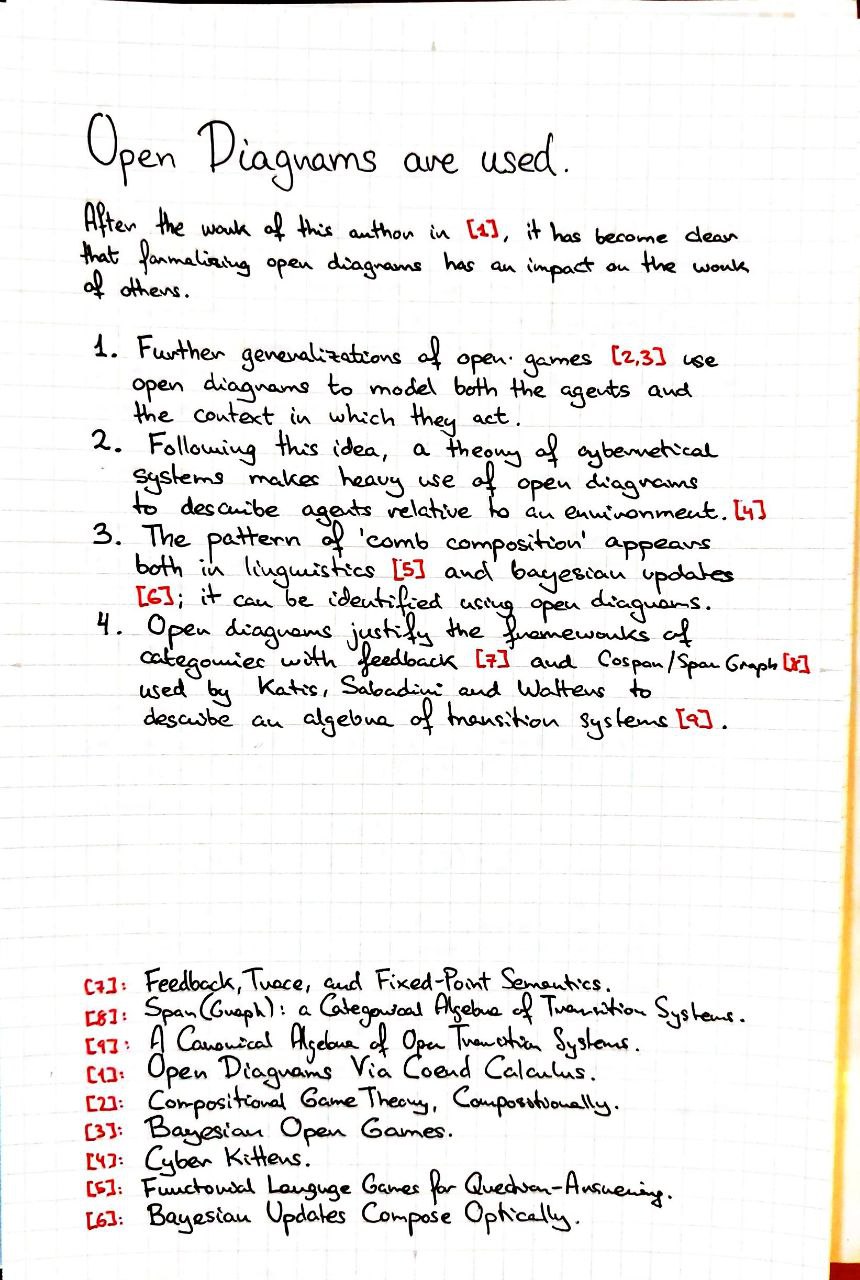 Open Diagrams are used.
After the work of this author in [1], it has become clear
that formalizing open diagrams has an impact on the work
of others.
1. Further generalizations of open games [2,3] use
open diagrams to model both the agents and
the context in which they act.
2. Following this idea, a theory of cybernetical
systems makes heavy use of open diagrams
to describe agents relative to an environment. [4]
3. The pattern of 'comb composition' appears
both in linguistics [5] and bayesian updates
[6]; it can be identified using open diagrams.
4. Open diagrams justify the frameworks of
categories with feedback [7] and Cospan/Span Graph [8]
used by Katis, Sabadini and Walters to
describe an algebra of transition systems [9].
[7]: Feedback, Trace, and Fixed-Point Semantics.
[8]: Span(Graph): a Categorical Algebra of Transition Systems.
[9]: A Canonical Algebra of Open Transition Systems.
[1]: Open Diagrams Via Coend Calculus.
[2]: Compositional Game Theory, Compositionally.
[3]: Bayesian Open Games.
[4]: Cyber Kittens.
[5]: Functorial Language Games for Question-Answering.
[6]: Bayesian Updates Compose Optically.